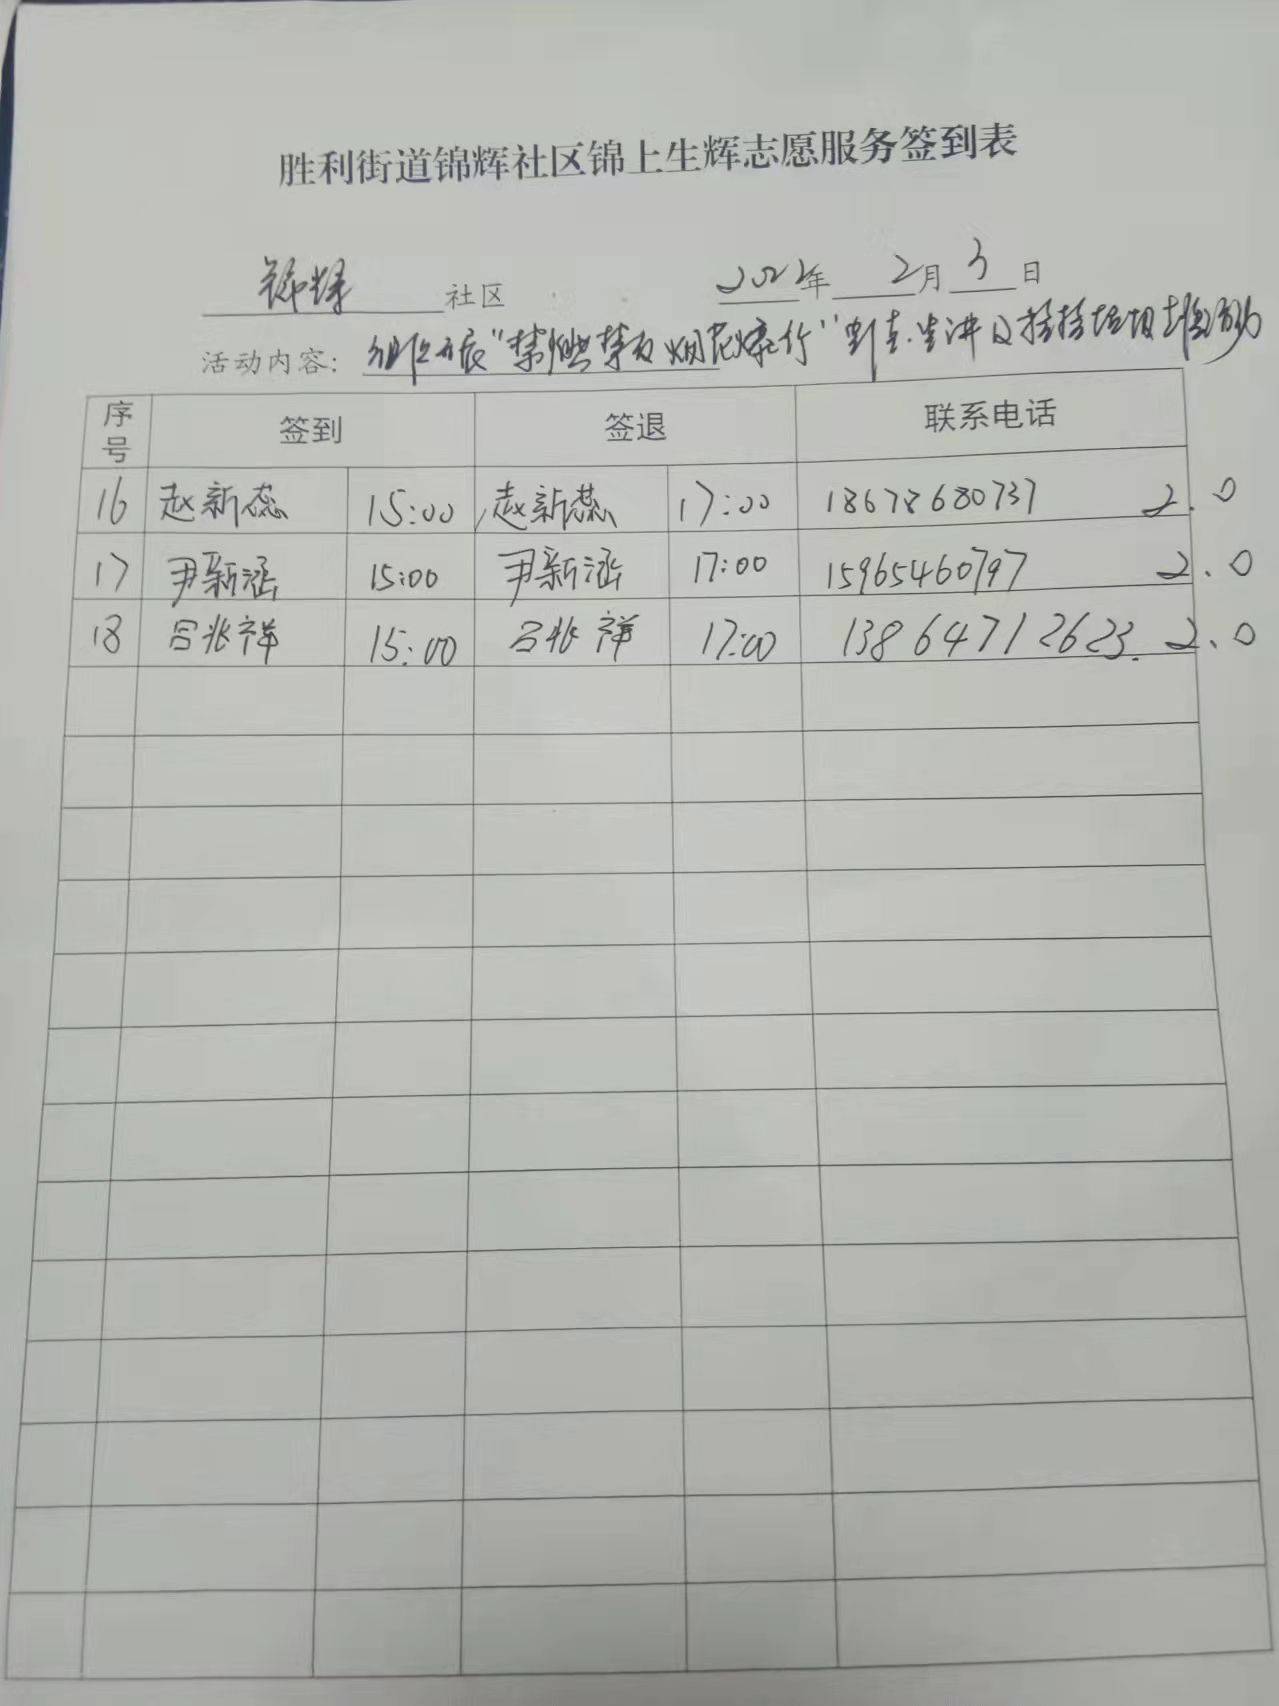 胜利街道锦辉社区锦上生辉志愿服务签到表
锦辉 社区 2022年 2月 3日
活动内容: 组织开展"禁燃禁放烟花爆竹" 宣讲及
序号 签到 签退 联系电话
16 赵新蕊 15:00 赵新蕊 17:00 18678680737 2.0
17 尹新涵 15:00 尹新涵 17:00 15965460797 2.0
18 吕兆祥 15:00 吕兆祥 17:00 13864712623. 2.0